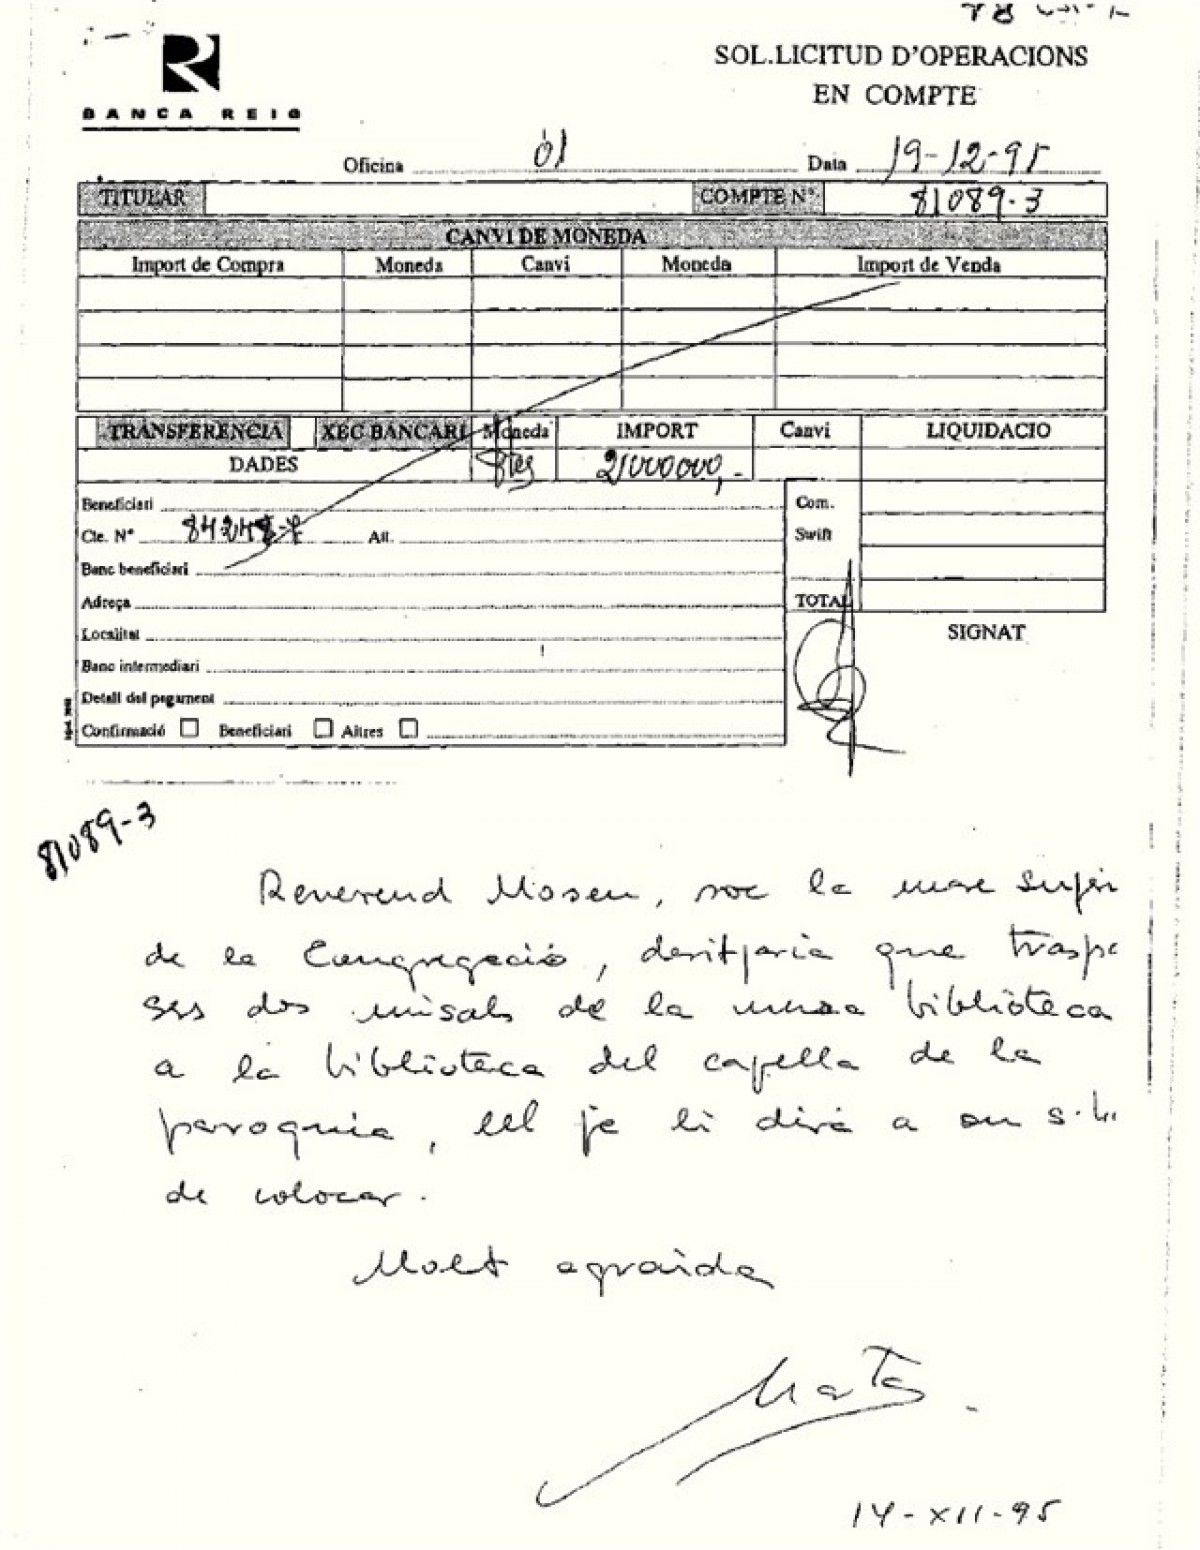 BANCA REIG
SOL.LICITUD D'OPERACIONS
EN COMPTE
Oficina 01 Data 19-12-95
TITULAR COMPTE Nº 81089-3
CANVI DE MONEDA
Import de Compra Moneda Canvi Moneda Import de Venda
TRANSFERENCIA XEC BANCARI Moneda IMPORT Canvi LIQUIDACIO
DADES Ptes 2000000,-
Beneficiari
Cte. Nº 84248-7 Alt.
Com.
Swift
Banc beneficiari
Adreça
TOTAL
Localitat
SIGNAT
Banc intermediari
Detall del pagament
Confirmació Beneficiari Altres
81089-3
Reverend Mosen, soc la mare Super
de la Congregació, desitjaria que traspa
ses dos misals de la meva biblioteca
a la biblioteca del capella de la
paroquia, ell ja li dira a on s.h
de colocar.
Molt agraida
Marta
14-XII-95